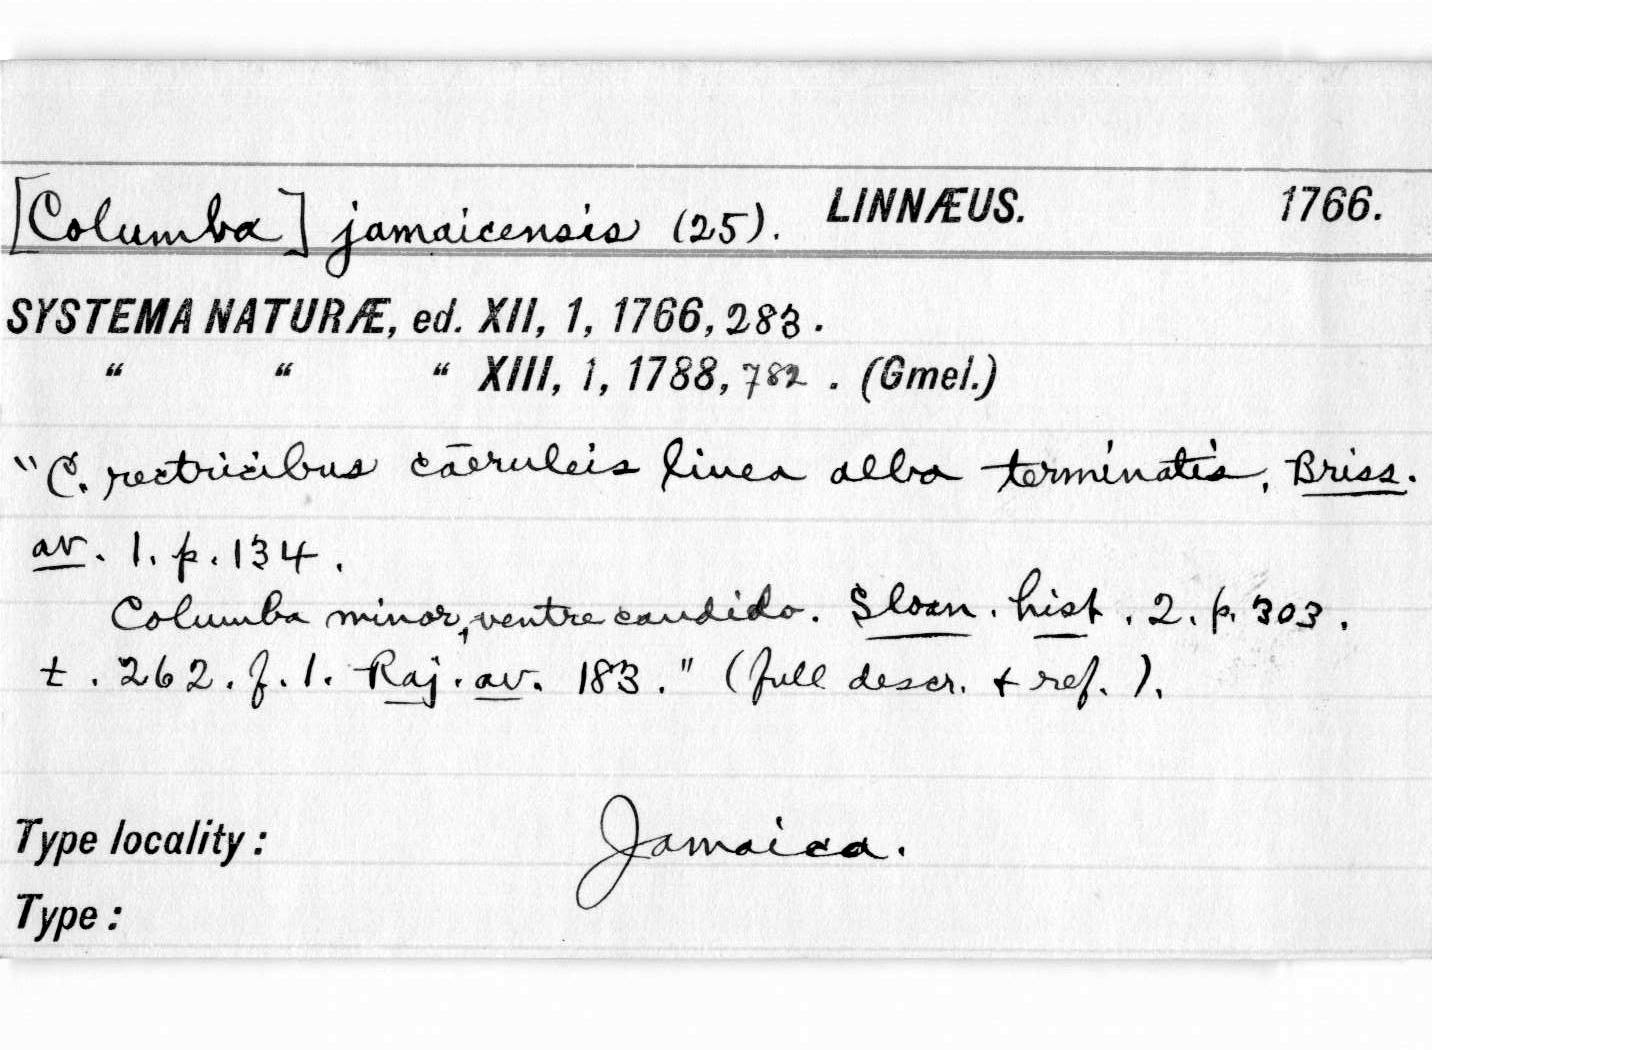 [Columba] jamaicensis (25). LINNÆUS. 1766.
SYSTEMA NATURÆ, ed. XII, 1, 1766, 283.
“ “ “ XIII, 1, 1788, 782. (Gmel.)
"C. rectricibus cāeruleis linea alba terminatis, Briss.
av. 1. p. 134.
Columba minor, ventre candido. Sloan. hist. 2. p. 303.
t. 262. f. 1. Raj. av. 183." (full descr. + ref.).
Type locality: Jamaica.
Type: